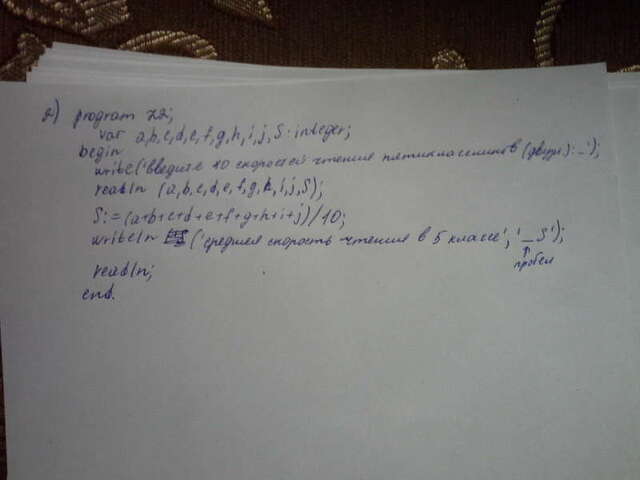 2) program z2;
var a,b,c,d,e,f,g,h,i,j,S:integer;
begin
write('введите 10 скоростей чтения пятиклассников (двузн.):_');
readln (a,b,c,d,e,f,g,h,i,j,S);
S:=(a+b+c+d+e+f+g+h+i+j)/10;
writeln ('средняя скорость чтения в 5 классе', '_S');
↑
пробел
readln;
end.